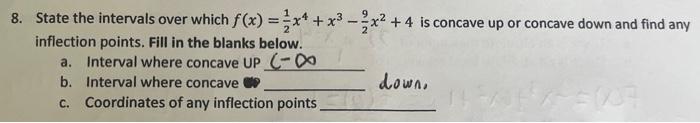 8. State the intervals over which f(x) = 1/2 x⁴ + x³ − 9/2 x² + 4 is concave up or concave down and find any
inflection points. Fill in the blanks below.
a. Interval where concave UP (-∞
b. Interval where concave ____ down,
c. Coordinates of any inflection points ____